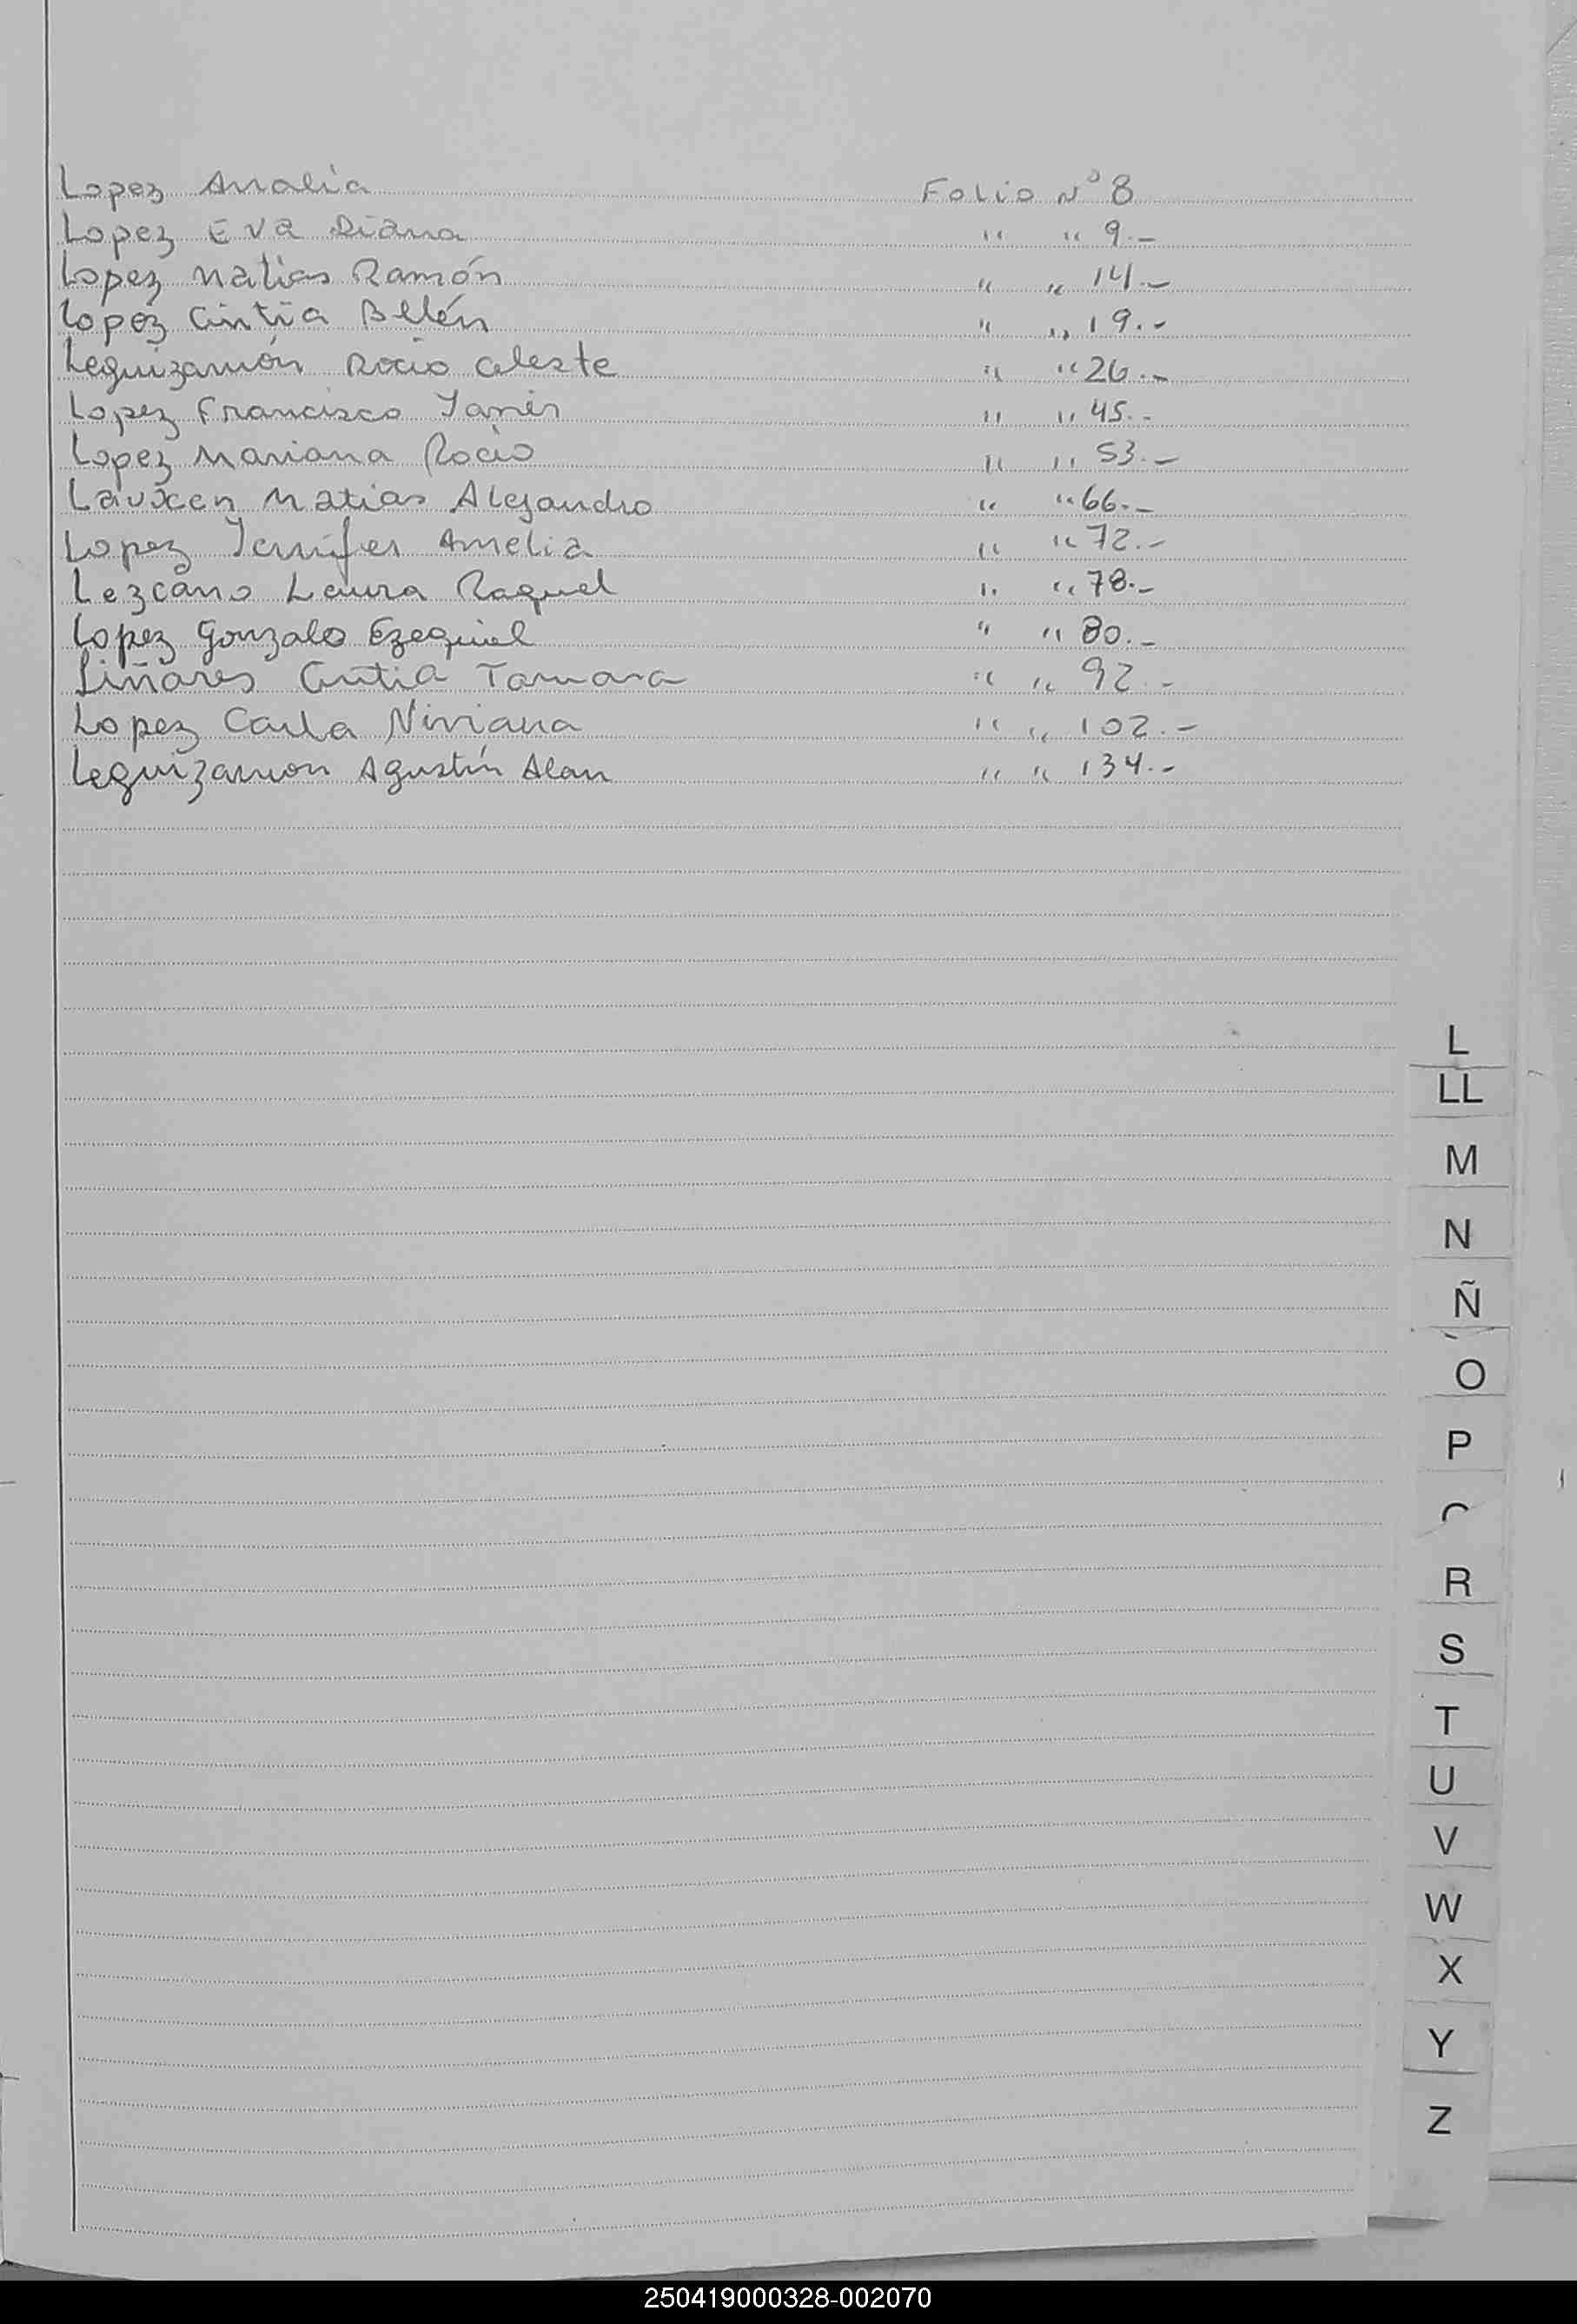 Lopez Analía Folio Nº 8
Lopez Eva Diana " " 9.-
Lopez Matias Ramón " " 14.-
Lopez Cintia Belén " " 19.-
Leguizamón Rocio Celeste " " 26.-
Lopez Francisco Yamir " " 45.-
Lopez Mariana Rocío " " 53.-
Lauxen Matias Alejandro " " 66.-
Lopez Jennifer Amelia " " 72.-
Lezcano Laura Raquel " " 78.-
Lopez Gonzalo Ezequiel " " 80.-
Liñares Cintia Tamara " " 92.-
Lopez Carla Niviana " " 102.-
Leguizamon Agustín Alan " " 134.-
L
LL
M
N
Ñ
O
P
R
S
T
U
V
W
X
Y
Z
250419000328-002070